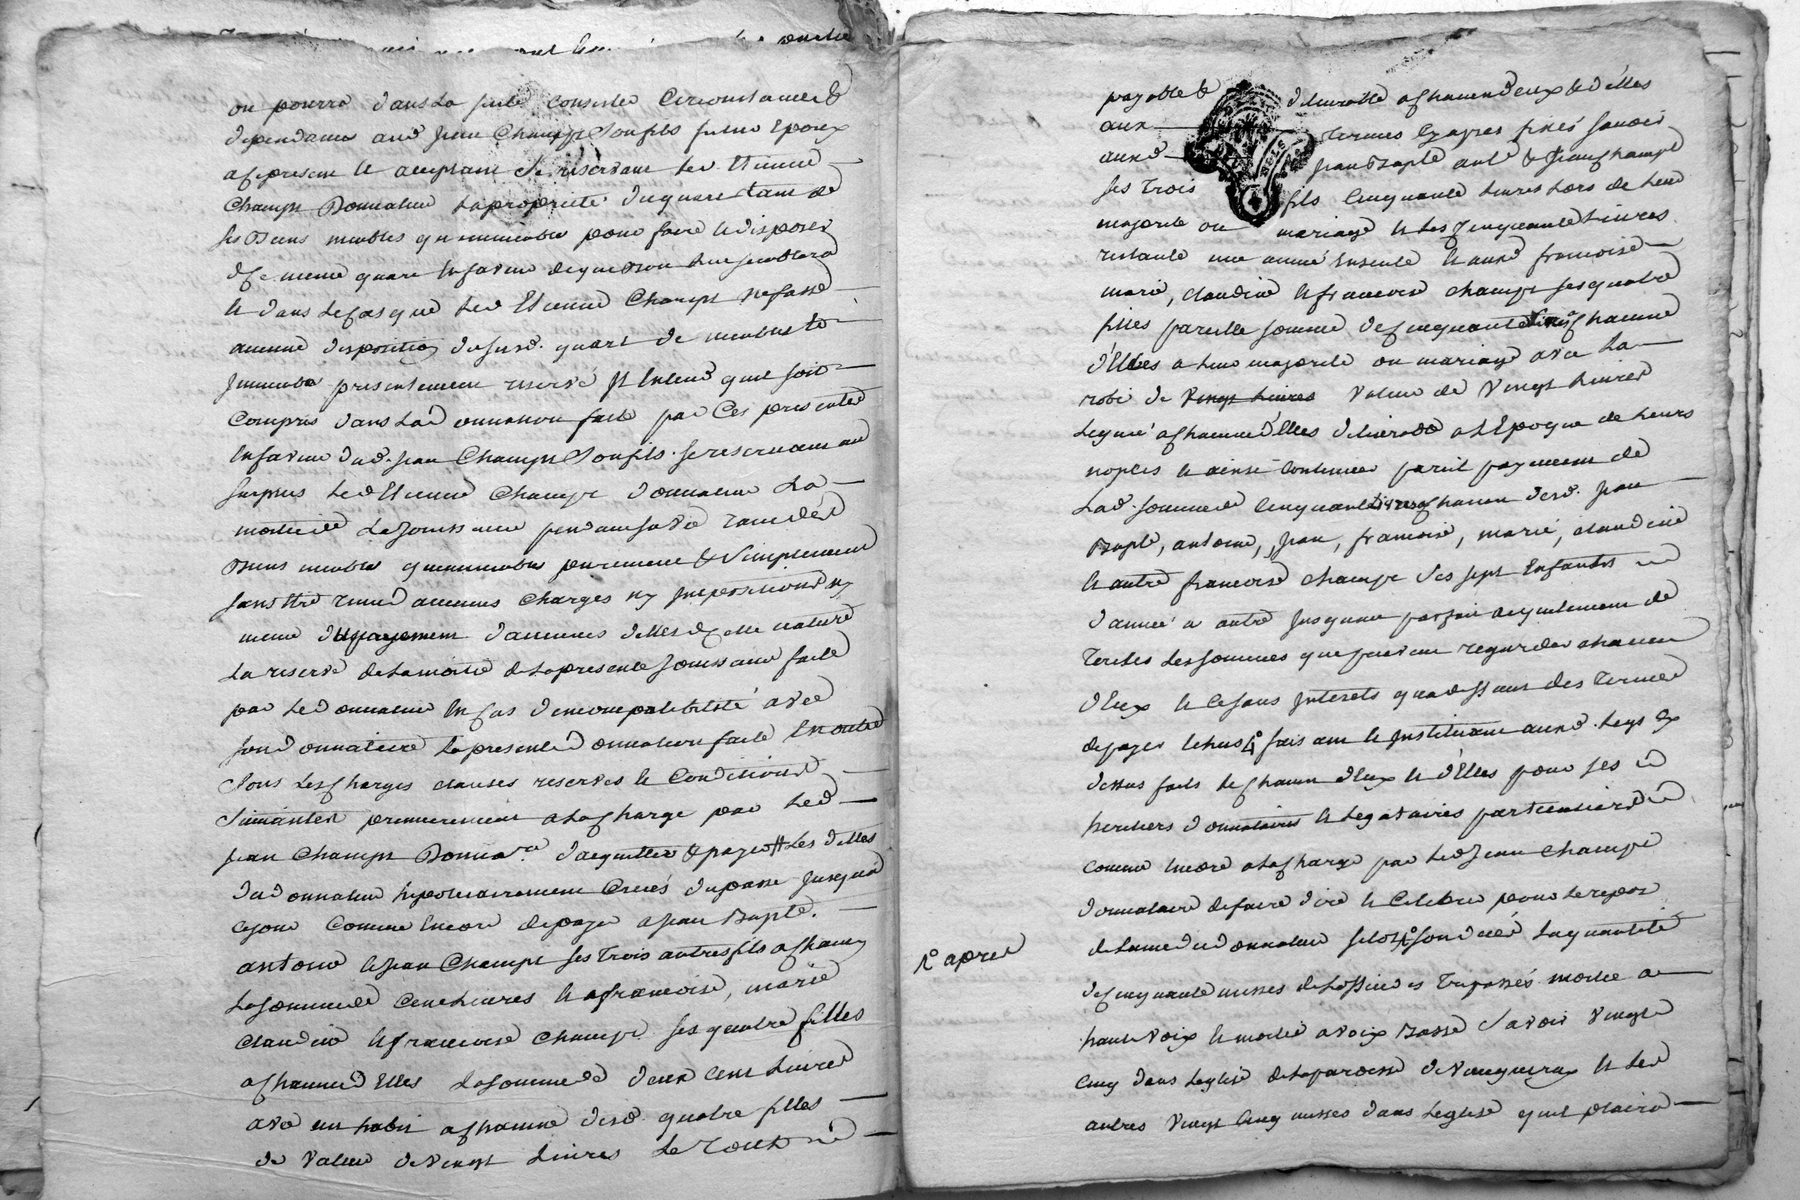 ou pourra dans la suitte consister circonstances &
dependances aud Jean Champt son fils futur Epoux
apresent et acceptant se reservant led Etienne
Champt Donnateur la propriété du quart tant de
ses Biens meubles qu immeubles pour faire et disposer
de meme quart en faveur de qui bon luy semblera
et dans le cas que led Etienne Champt ne fasse
aucune disposition dususd. quart de meubles et
immeubles presentement reservé Il Entend quil soit
compris dans la donnation faite par Ces presentes
En faveur dud. Jean Champt son fils. se reservant au
surplus led Etienne Champt donnateur La
moitié de la jouissance pendant sa vie tant desd
Biens meubles qu immeubles purement & simplement
sans être tenu d aucunes charges ny impositions ny
meme du payement d aucunes dettes de cette nature
La reserve de la moitié de la presente jouissance faite
par led donnateur En cas d incompatibilité avec
son donnataire la presente donnation faite En outre
sous les charges clauses reserves et Conditions
suivantes premierement a la charge par led
Jean Champt Donnare. d acquitter & payer les dettes
du donnateur hipotecairement Créés du passé jusqua
ce jour comme Encore de payer a Jean Bapte.
antoine et Jean Champt ses trois autres fils a chacun
la somme de Cent livres et a françoise, marie
claudine et françoise champt ses quatre filles
a chacune d Elles la somme de deux cent livres
avec un habit a chacune desd. quatre filles
de valeur de vingt livres Le tout
payable & delivrable a chacun d eux & d elles
aux termes cy apres fixés savoir
auxd Jean Bapte ante & Jean champt
ses trois fils cinquante livres lors de leur
majorité ou mariage et les cinquante livres
restante une année Ensuite et auxd françoise
marie, claudine et françoise champt ses quatre
filles pareille somme de cinquante livres a chacune
d Elles a leur majorité ou mariage avec La
robe de vingt livres valeur de vingt livres
Leguée a chacune d Elles delivrable a l Epoque de leurs
nopces et ainsi continuer pareil payement de
Lad. somme de cinquante livres a chacun desd. Jean
Bapte, antoine, Jean, françoise, marie, claudine
et autre françoise champt ses sept Enfants
d année a autre jusquau parfait acquitement de
toutes les sommes que peuvent regarder chacun
d Eux et ce sans interets qua deffaut des termes
de payer echus faisant et instituant auxd. Legs cy
dessus faits de chacun d Eux et d Elles pour ses
heritiers donnataires et legataires particuliers
comme Encore a la charge par led Jean champt
donnataire de faire dire et Celebrer pour le repos
de l ame du donnateur sitot son decés La quantité
1° apres
de cinquante messes de l office des Trepassés moitié a
haute voix et moitié a voix Basse savoir vingt
cinq dans l eglise de la paroisse de et les
autres vingt cinq messes dans l eglise quil plaira